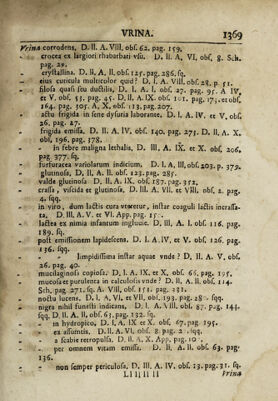 VRINA. 1369
Vrina corrodens, D. II. A. VIII. obs. 62. pag. 159.
- crocea ex largiori rhabarbati vsu. D. II. A, VI, obs. 8. Sch.
pag. 29.
- crystallina. D. II. A, II. obs. 125. pag. 286. sq.
- eius cuticula multicolor quid? D. I. A. VIII. obs. 28. p. 51.
- filosa quasi seu ductilis, D. I. A. I. obs. 27. pag. 95. A IV.
et V. obs. 53. pag. 45. D. II. A. IX. obs. 101. pag. 175. et obs.
164. pag. 305. A. X. obs. 113. pag. 207.
- actu frigida in sene dysuria laborante. D. I. A. IV. et V. obs.
26. pag. 27.
- frigida emissa. D. II. A. IV. obs. 140. pag. 275. D. II. A. X.
obs. 196. pag. 378.
- - in febre maligna lethalis, D. III. A. IX. et X. obs. 206.
pag. 377. sq.
- furfuracea variolarum indicium, D. I. A. III. obs. 203. p. 379.
- glutinosa, D, II, A. II. obs. 123. pag. 285.
- valde glutinosa. D. II, A. IX. obs. 187. pag. 352.
- crassa, viscida et glutinosa, D. III. A. VII. et VIII. obs. 2. pag.
4. sqq.
- in viro, dum lactis cura vteretur, instar coaguli lactis incrassa-
ta, D. III. A. V. et VI. App. pag. 15
- lactea ex nimia infantum ingluuie. D. III, A. I. obs. 116. pag.
189. sq.
- post emissionem lapidescens. D. I. A. IV. et V. obs. 126. pag.
136. sqq.
- - limpidissima instar aquae vnde? D, II. A. V. obs.
26. pag. 40.
- mucilaginosa copiosa. D. I. A. IX. et X, obs. 66. pag. 195.
- mucosa et purulenta in calculosis vnde? D. II. A. II. obs. 114.
Sch. pag. 271. sq. A. VIII, obs. 151. pag. 331.
- noctu lucens. D. I. A. VI. et VII. obs. 193. pag. 28 . sqq.
- nigra nihil funesti indicans, D. I. A. VIII. obs. 87. pag. 144.
sqq. D. II. A. II. obs. 63. pag. 132. sq.
- - in hydropico, D. I. A, IX et X. obs. 67. pag. 195.
- - ex assumtis, D. II. A. VI, obs. 8. pag. 2 . sqq.
- - a scabie retropulsa. D. II. A. X. App, pag. 10
- - per omnem vitam emissa. D. II. A. II. obs. 63. pag.
136.
- - non semper periculosa, D. III. A. IV. obs. 23. pag. 31. sq.
Vrina